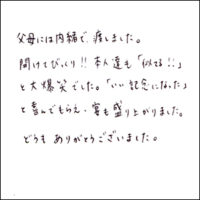 父母には内緒で、渡しました。
開けてびっくり!!本人達も「似てる!!」
と大爆笑でした。「いい記念になった」
と喜んでもらえ、宴も盛り上がりました。
どうも ありがとうございました。